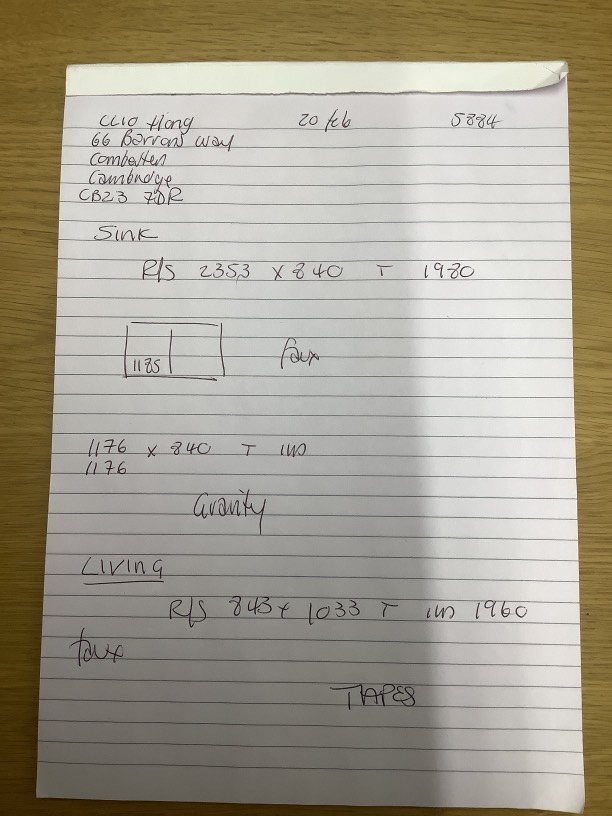 CLIO Hong 20 feb 5884
66 Barrons Way
Comberton
Cambridge
CB23 7DR
Sink
R/S 2353 x 840 T 1980
1185 faux
1176 x 840 T
1176
Gravity
LIVING
R/S 843 x 1033 T 1960
faux
TAPES